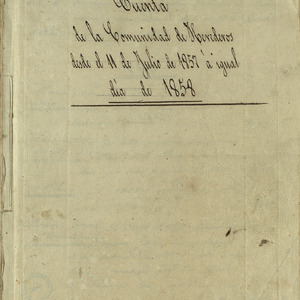 Cuenta
de la Comunidad de Herederos
desde el 11 de Julio de 1857 à igual
dia de 1858